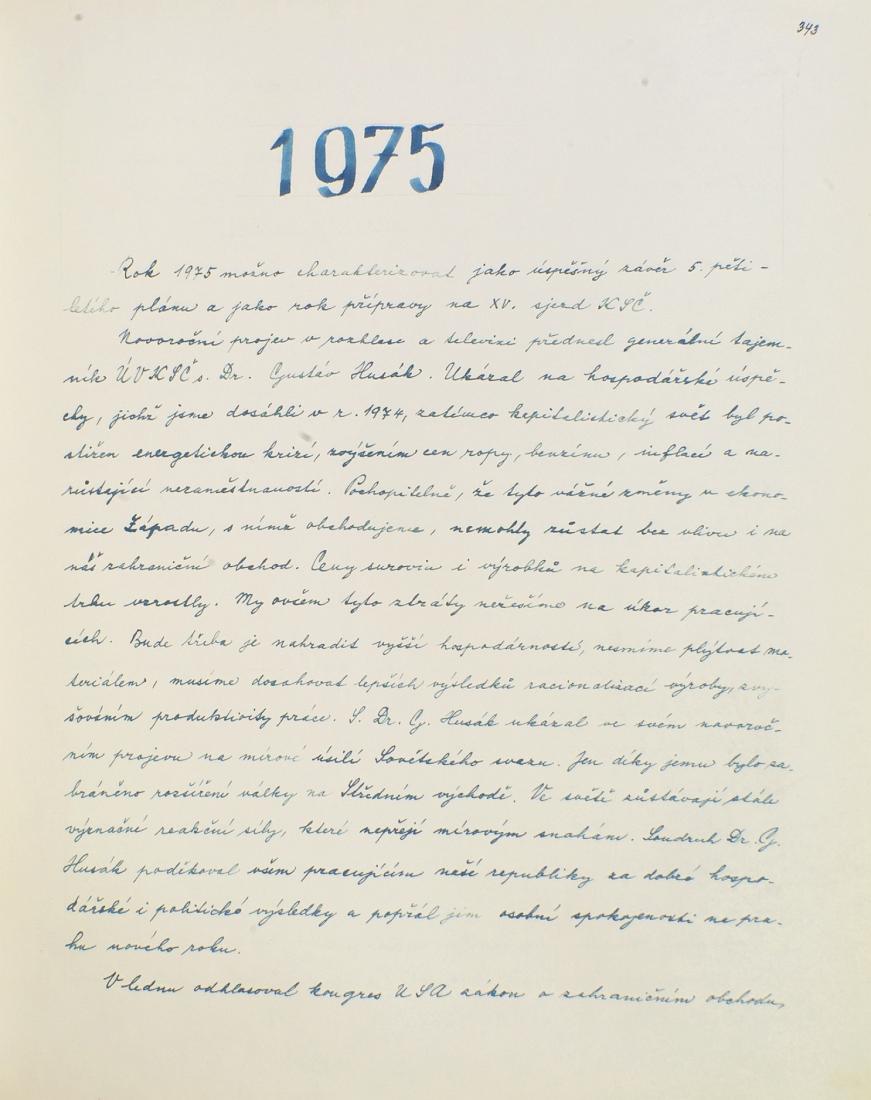 343
1975
Rok 1975 možno charakterizovat jako úspěšný závěr 5. pěti-
letého plánu a jako rok přípravy na XV. sjezd KSČ.
Novoroční projev v rozhlase a televizi přednesl generální tajem-
ník ÚV KSČ s. Dr. Gustáv Husák. Ukázal na hospodářské úspě-
chy, jichž jsme dosáhli v r. 1974, zatímco kapitalistický svět byl po-
stižen energetickou krizí, zvýšením cen ropy, benzínu, inflací a na-
růstající nezaměstnaností. Pochopitelně, že tyto vážné změny v ekono-
mice Západu, s nímž obchodujeme, nemohly zůstat bez vlivu i na
náš zahraniční obchod. Ceny surovin i výrobků na kapitalistickém
trhu vzrostly. My ovšem tyto ztráty neřešíme na úkor pracují-
cích. Bude třeba je nahradit vyšší hospodárností, nesmíme plýtvat ma-
teriálem, musíme dosahovat lepších výsledků racionalizací výroby, zvy-
šováním produktivity práce. S. Dr. G. Husák ukázal ve svém novoroč-
ním projevu na mírové úsilí Sovětského svazu. Jen díky jemu bylo za-
bráněno rozšíření války na Středním východě. Ve světě zůstávají stále
význační reakční síly, které nepřejí mírovým snahám. Soudruh Dr. G.
Husák poděkoval všem pracujícím naší republiky za dobré hospo-
dářské i politické výsledky a popřál jim osobní spokojenosti na pra-
hu nového roku.
V lednu odhlasoval kongres USA zákon o zahraničním obchodu,